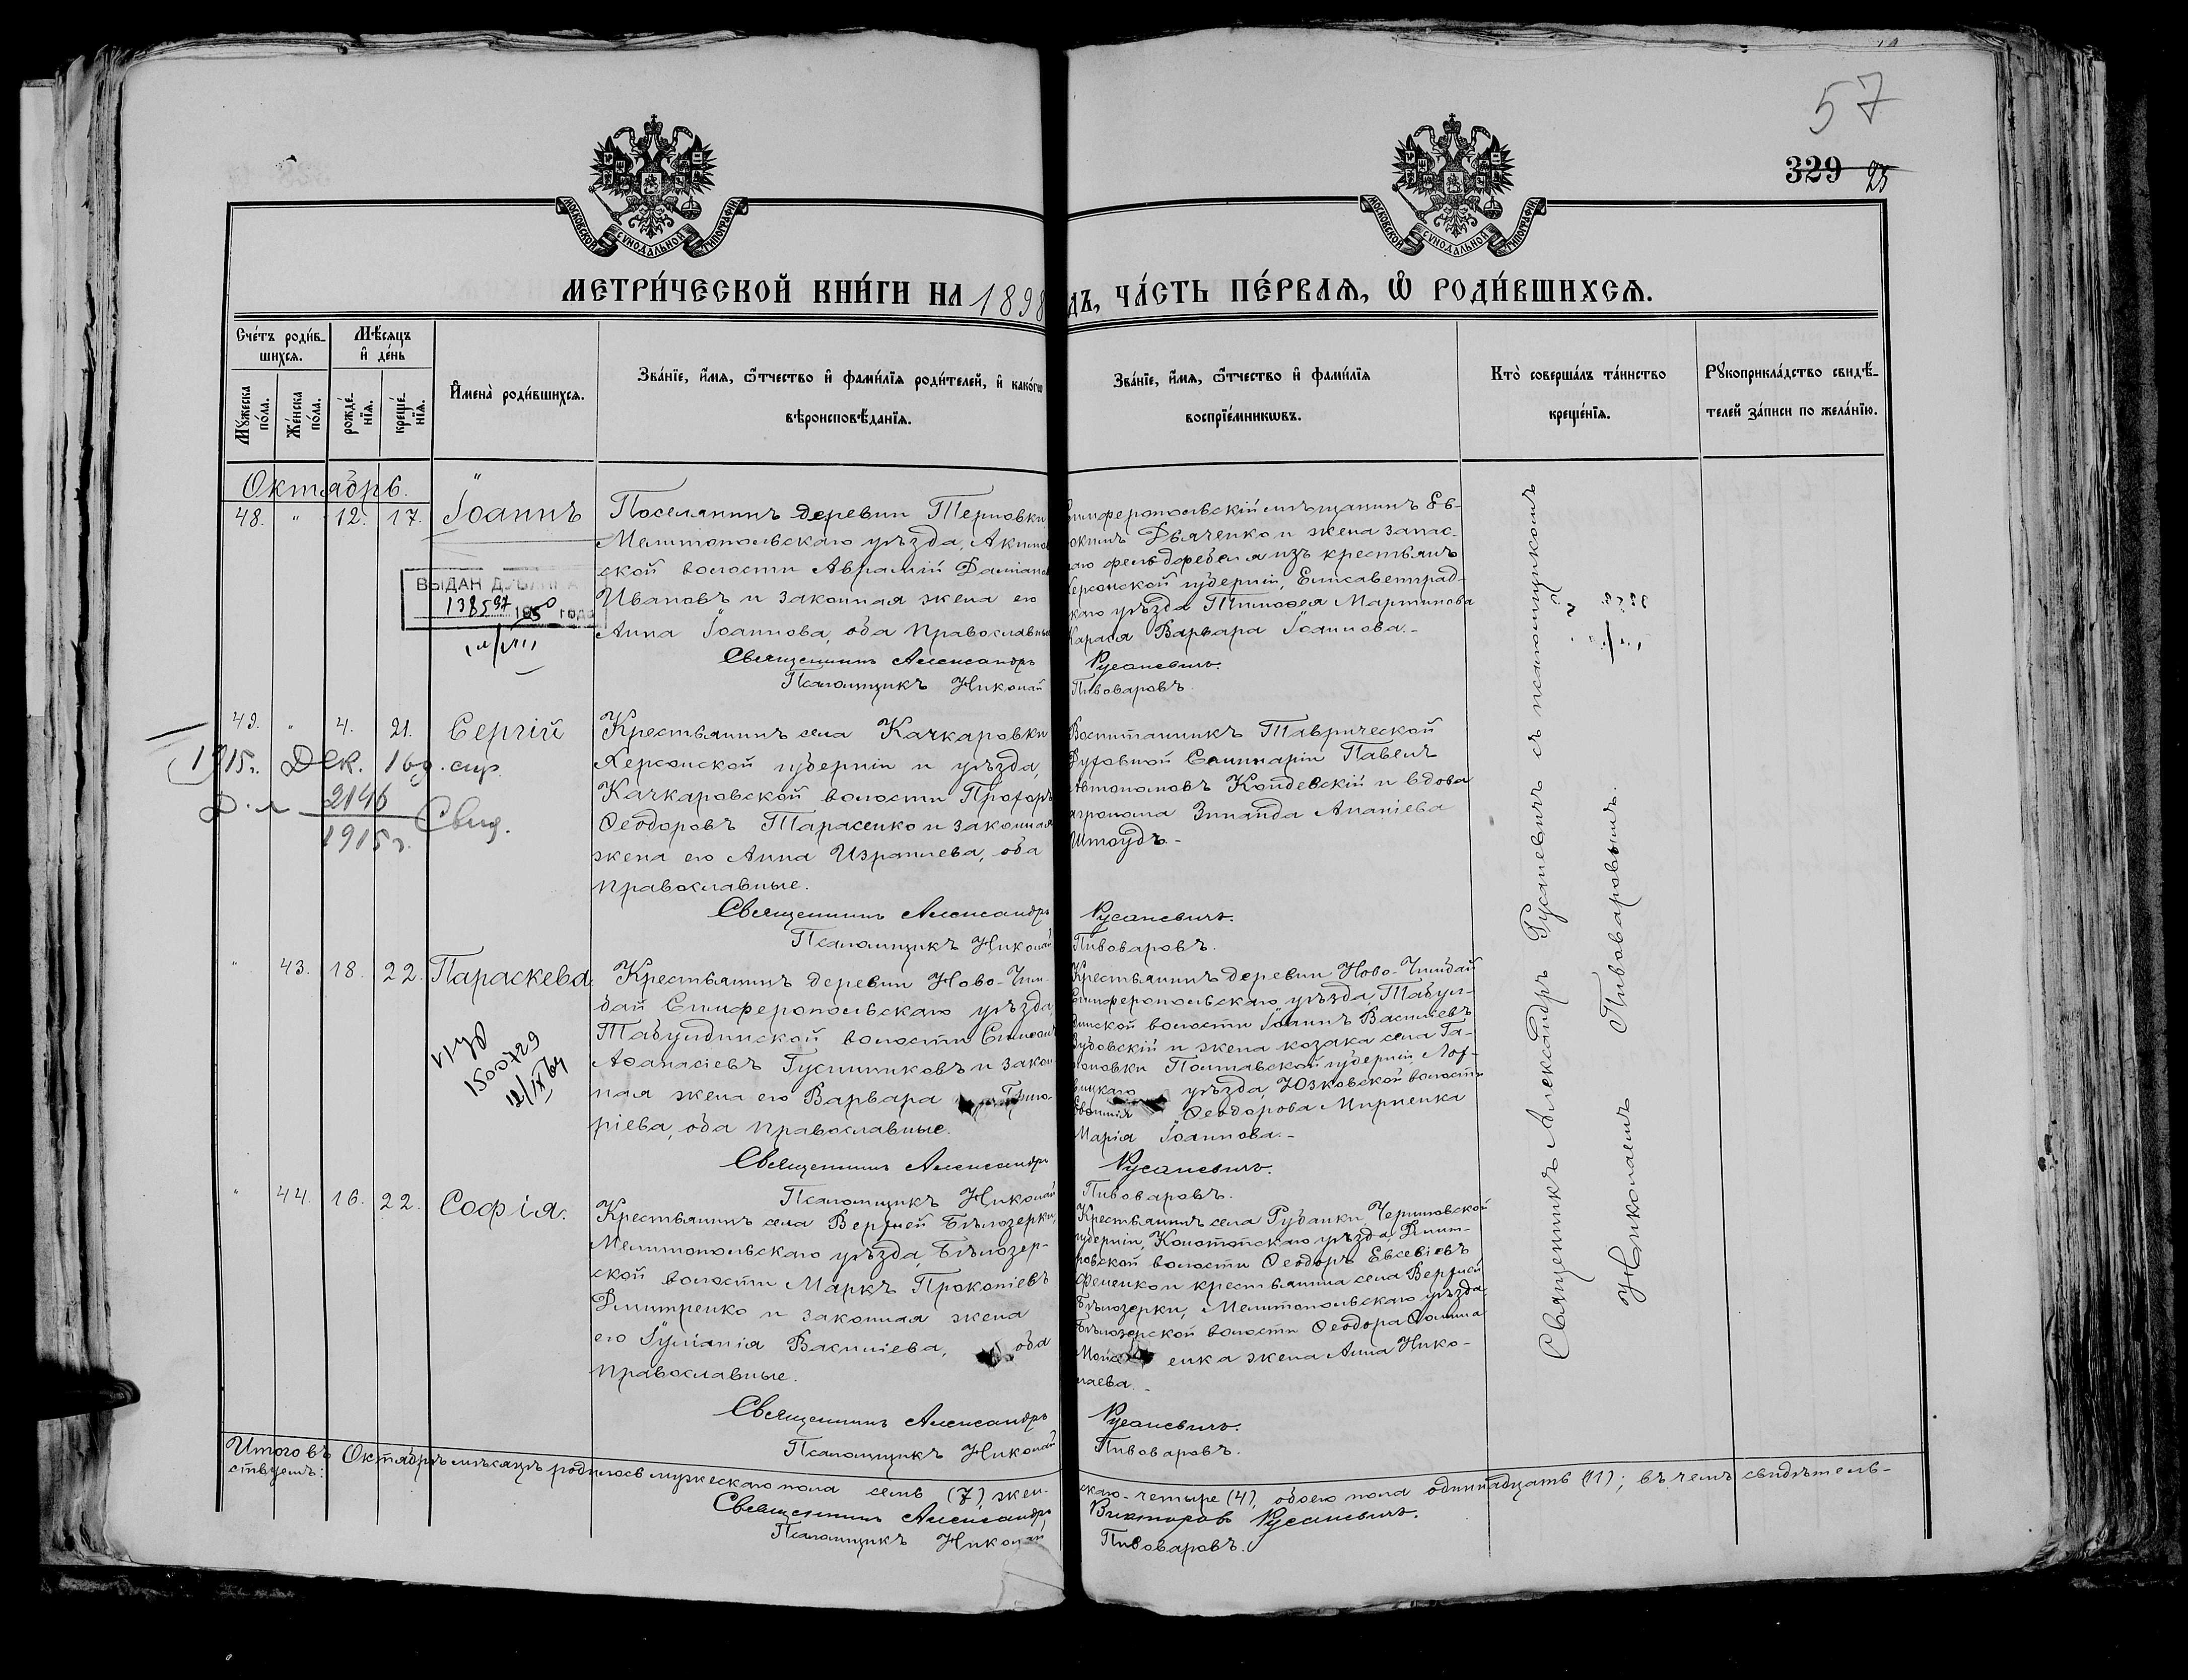 57
329 25
МОСКОВСКОЙ СѴНОДАЛЬНОЙ ТИПОГРАФІИ
МОСКОВСКОЙ СѴНОДАЛЬНОЙ ТИПОГРАФІИ
МЕТРИ́ЧЕСКОЙ КНИ́ГИ НА 1898
ДЪ, ЧА́СТЬ ПЕ́РВАѦ, Ѽ РОДИ́ВШИХСѦ.
Сче́тъ роди́в-
шихсѧ.
Мѣ́сѧцъ
и҆ де́нь
Мꙋ́жеска
по́ла.
Же́нска
по́ла.
рожде́-
нїѧ.
креще́-
нїѧ.
И҆мена̀ роди́вшихсѧ.
Зва́нїе, и҆́мѧ, ѻ҆́тчество и҆ фами́лїѧ роди́телей, и҆ како́гѡ
вѣроисповѣ́данїѧ.
Зва́нїе, и҆́мѧ, ѻ҆́тчество и҆ фами́лїѧ
воспрїе́мникѡвъ.
Кто̀ соверша́лъ та́инство
креще́нїѧ.
Рꙋкоприкла́дство свидѣ́-
телей за́писи по жела́нїю.
Октябрь.
48. " 12. 17. Іоаннъ
Поселянинъ деревни Терновки
Мелитопольскаго уѣзда, Акимов
ской волости Аврамій Даміанов
Ивановъ и законная жена его
Анна Іоаннова, оба православные
Священникъ Александръ
Псаломщикъ Николай
имферопольскій мѣщанинъ Ев-
окимъ Дьяченко и жена запас-
аго фельдфебеля изъ крестьянъ
Херсонской губерніи, Елисаветград-
скаго уѣзда Тимофея Мартинова
Карася Варвара Іоаннова.-
Русаневичъ.
Пивоваровъ.
ВЫДАН ДУБЛИКАТ
138537 1950 года
49. " 4. 21. Сергій
1915г. Дек. 16д. спр.
2146
1915г. Свид.
Крестьянинъ села Качкаровки
Херсонской губерніи и уѣзда,
Качкаровской волости Прохоръ
Ѳеодоровъ Тарасенко и законная
жена его Анна Израилева, оба
православные.
Священникъ Александръ
Псаломщикъ Николай
Воспитанникъ Таврической
Духовной Семинаріи Павелъ
Автономовъ Койдевскій и вдова
агронома Зинаида Ананіева
Штаудъ.-
Русаневичъ.
Пивоваровъ.
" 43. 18. 22. Параскева.
1500729
12/IX 64
Крестьянинъ деревни Ново-Чим-
бай Симферопольскаго уѣзда,
Табулдинской волости Симеонъ
Аѳанасіевъ Гусинниковъ и закон
ная жена его Варвара Григо-
ріева, оба православные.
Священникъ Александръ
Псаломщикъ Николай
Крестьянинъ деревни Ново-Чимбай
Симферопольскаго уѣзда, Табул-
динской волости Іоаннъ Васильевъ
Зубовскій и жена козака села Га-
поновки Полтавской губерніи, Лох-
вицкаго уѣзда, Юзковской волости
Ѳеодорова Мирненка
Марія Іоаннова.-
Русаневичъ.
Пивоваровъ.
" 44. 16. 22. Софія.
Крестьянинъ села Верхней Бѣлозерки,
Мелитопольскаго уѣзда, Бѣлозер-
ской волости Маркъ Прокопіевъ
Дмитренко и законная жена
его Іуліанія Василіева, оба
православные.
Священникъ Александръ
Псаломщикъ Николай
Крестьянинъ села Рубанки, Черниговской
губерніи, Конотопскаго уѣзда, Дмит-
ровской волости Ѳеодоръ Евсевіевъ
Фененко и крестьянина села Верхней
Бѣлозерки, Мелитопольскаго уѣзда,
Бѣлозерской волости Ѳеодора Ѳомина
енка жена Анна Нико-
лаева.-
Русаневичъ.
Пивоваровъ.
Священникъ Александръ Русаневичъ съ псаломщикомъ
Николаемъ Пивоваровымъ.
Итого въ Октябрѣ мѣсяцѣ родилось мужескаго пола семь (7), жен-
скаго-четыре (4), обоего пола одиннадцать (11); въ чемъ свидѣтель-
ствуемъ:
Священникъ Александръ
Викторовъ Русаневичъ.
Псаломщикъ Николай
Пивоваровъ.